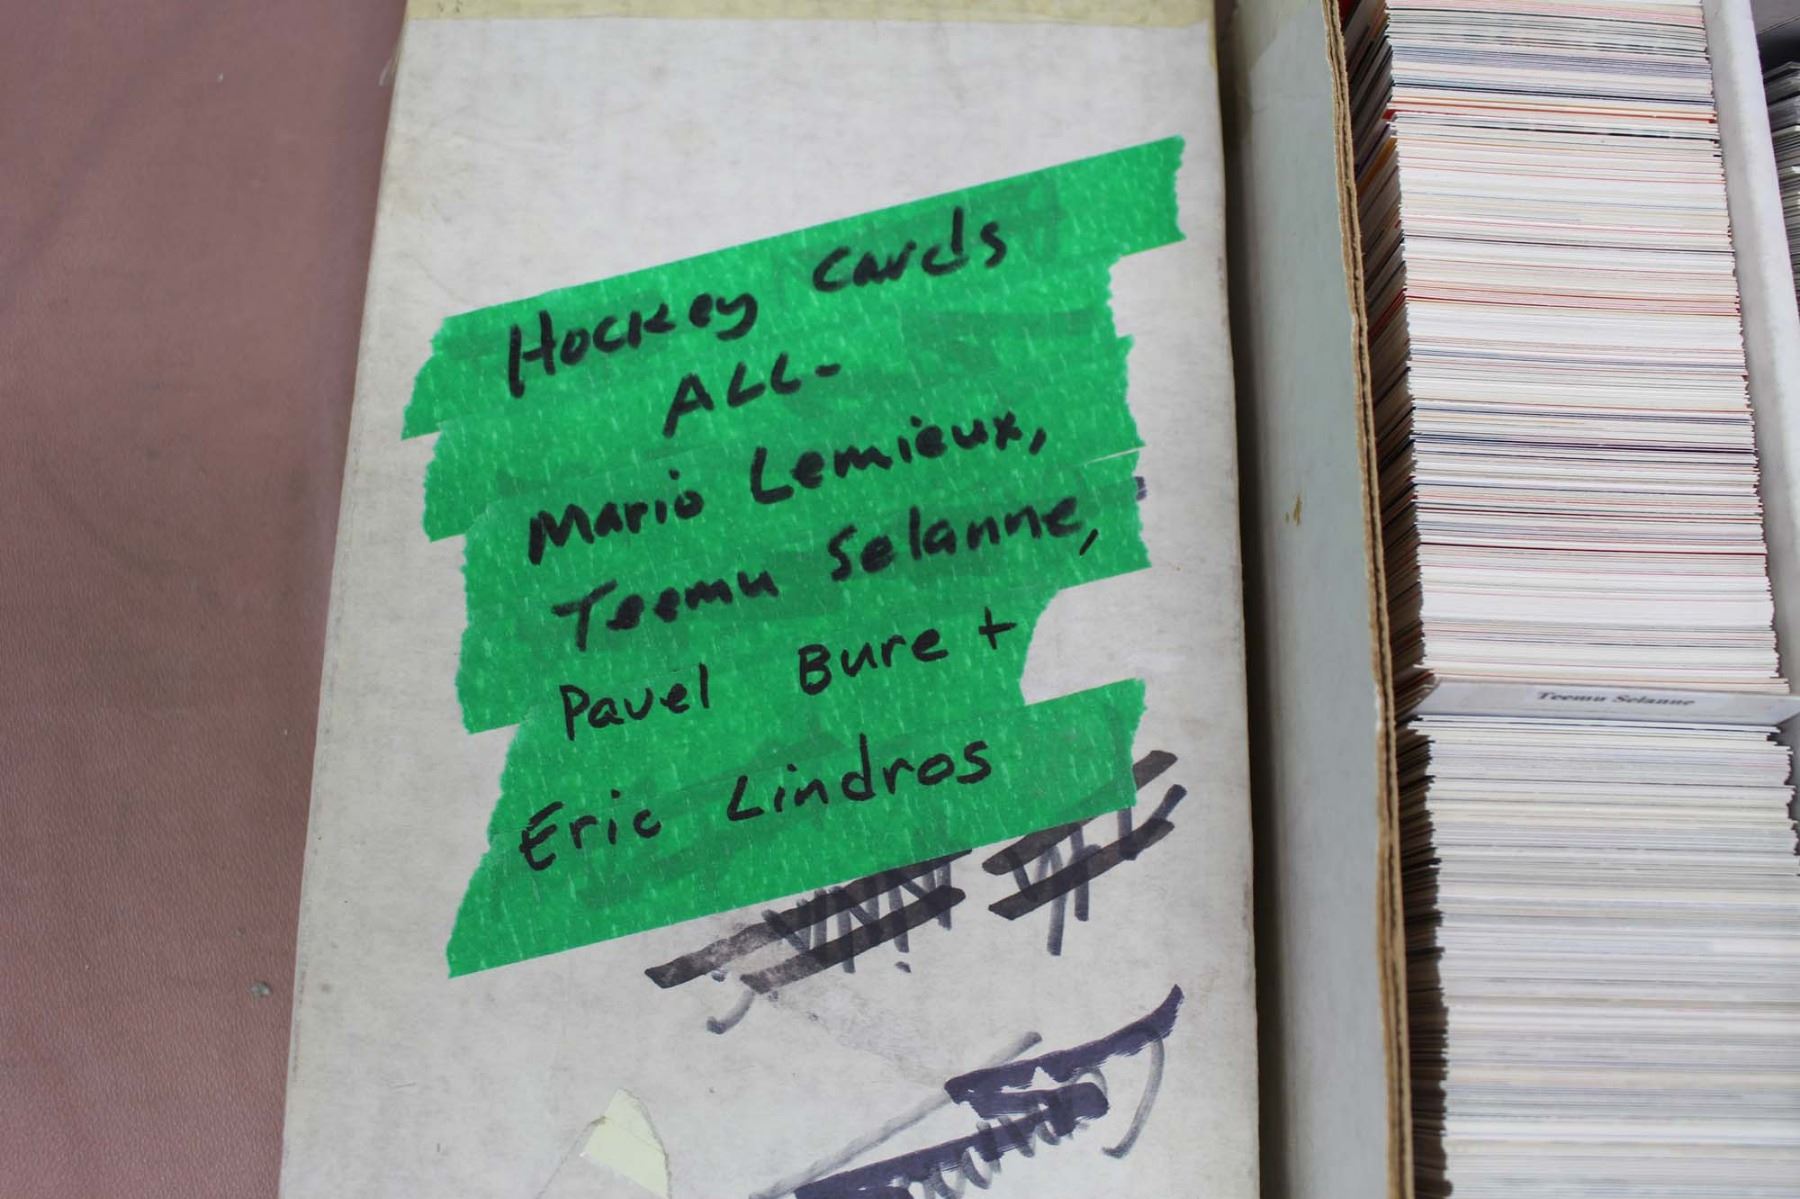 Hockey Cards
ALL-
Mario Lemieux,
Teemu Selanne,
Pavel Bure +
Eric Lindros
Teemu Selanne